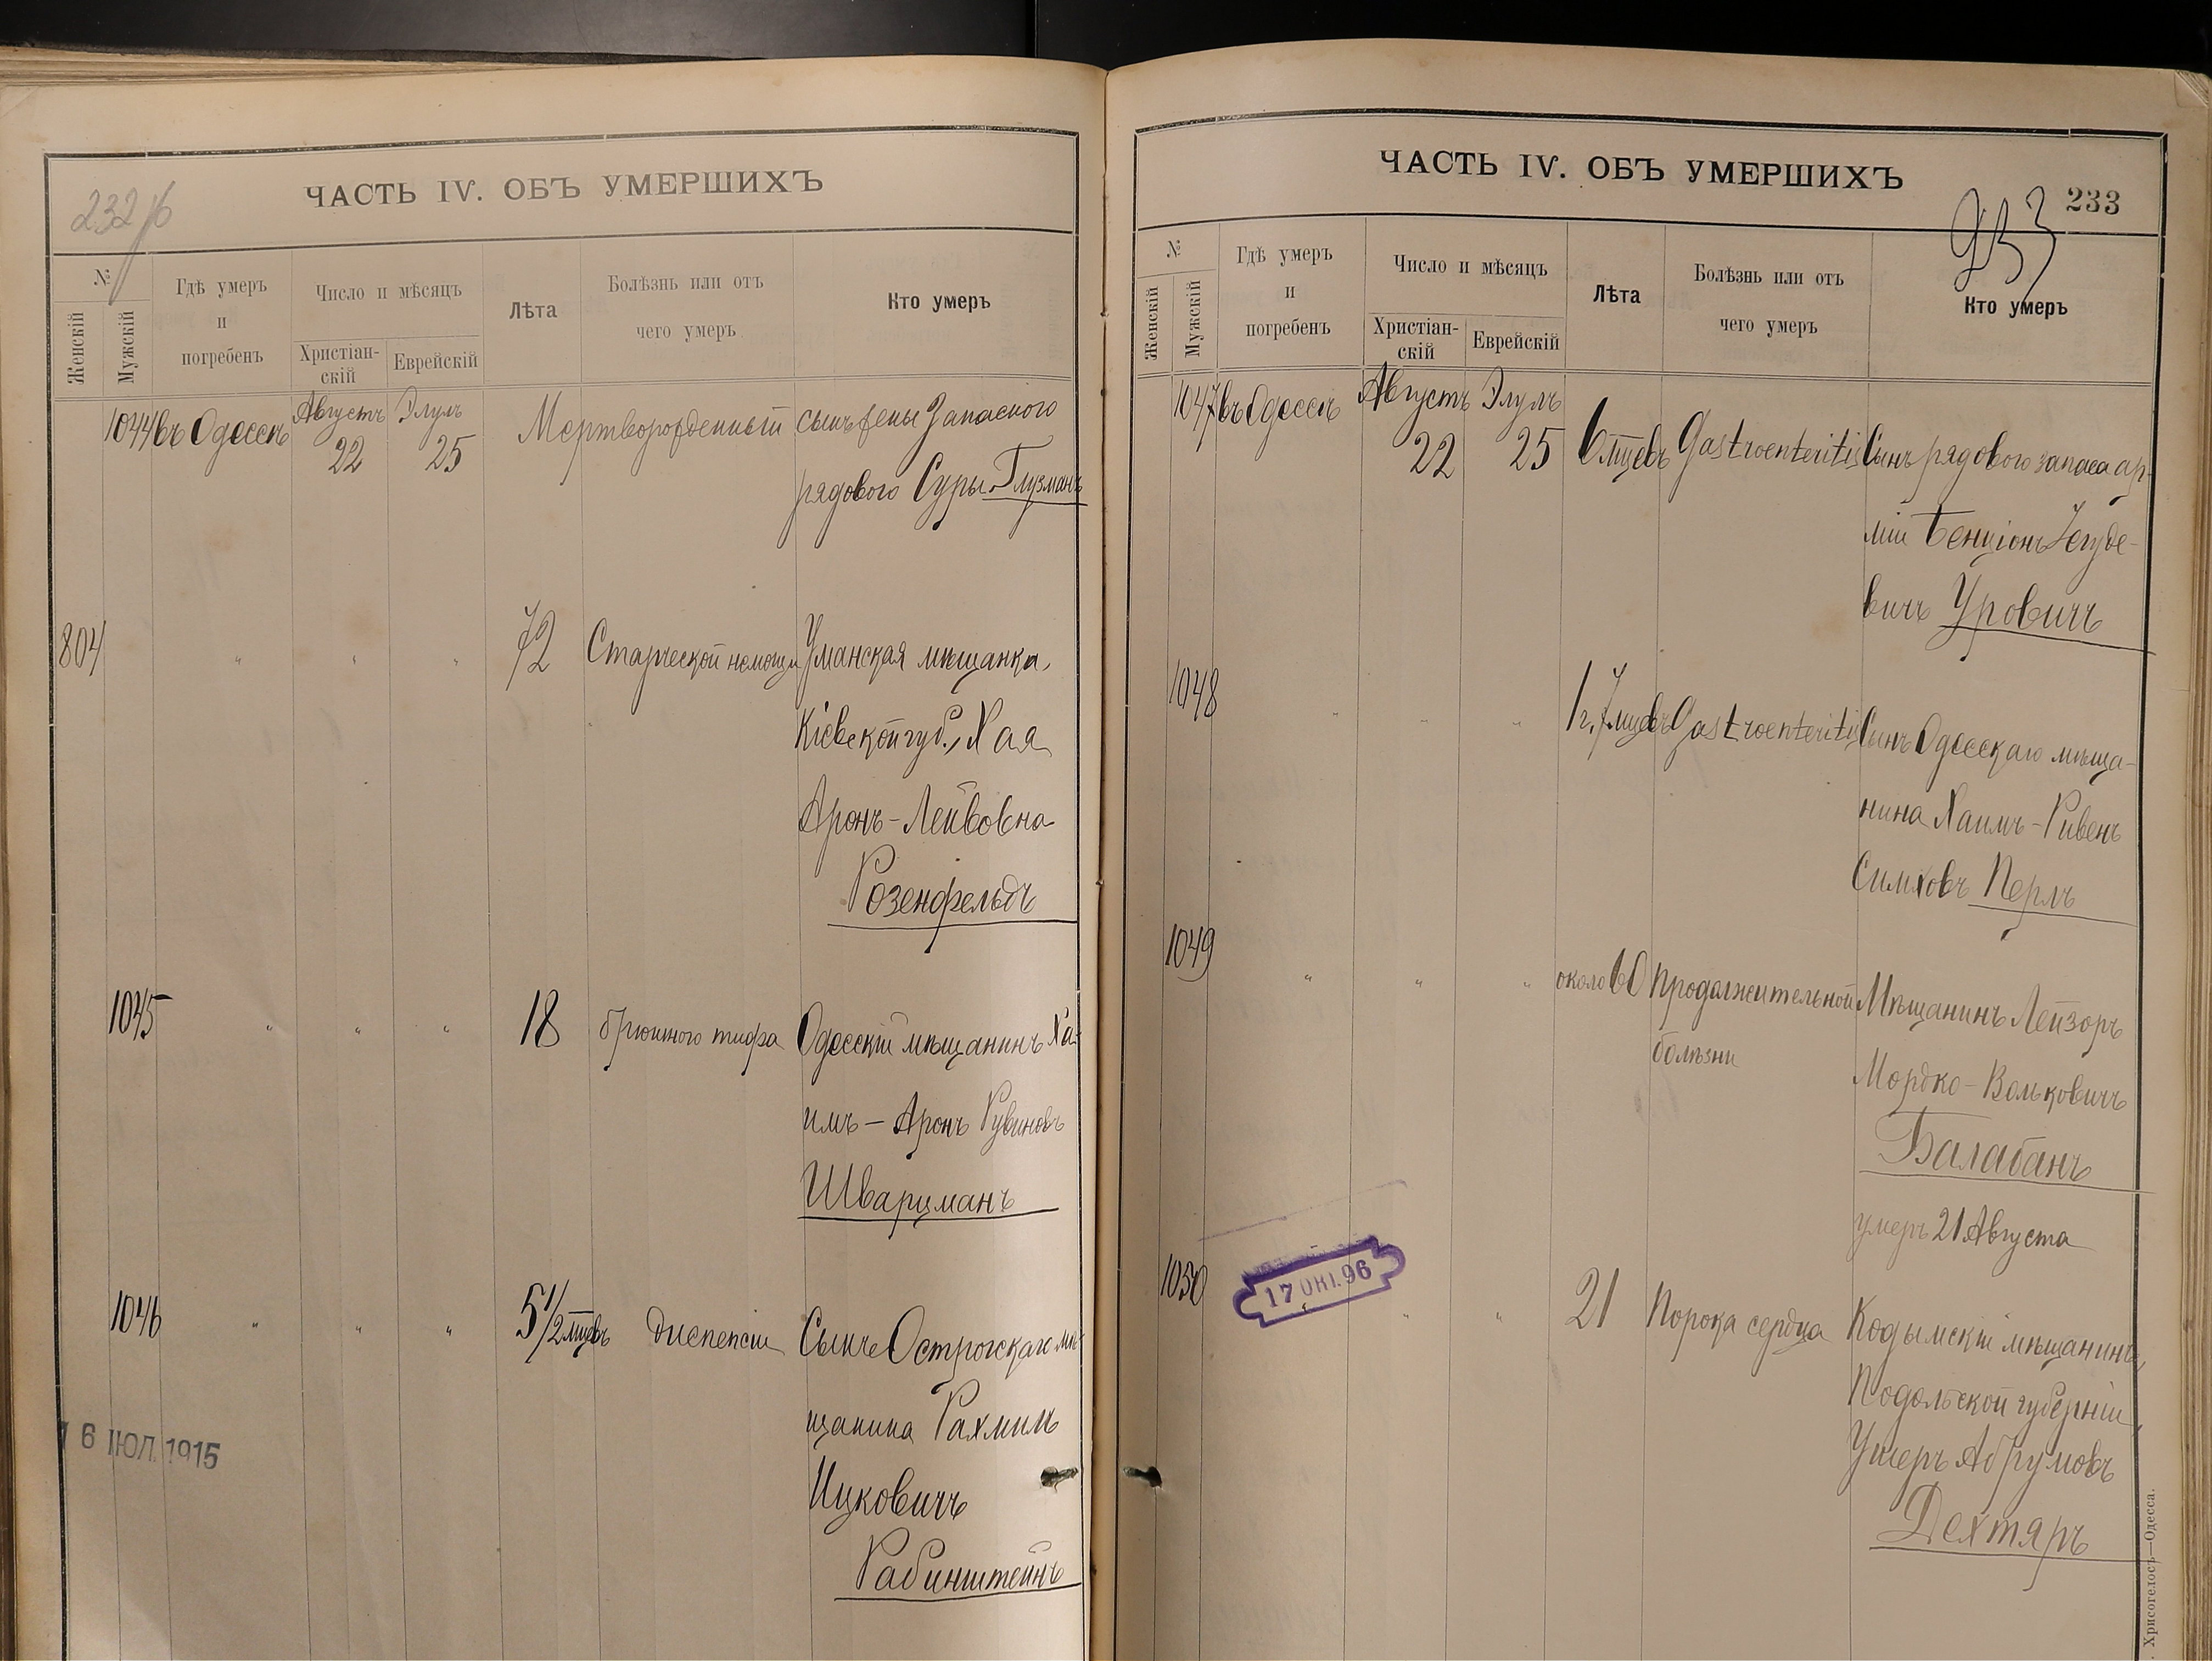 ЧАСТЬ IV. ОБЪ УМЕРШИХЪ
232 об
№
Женскій
Мужскій
Гдѣ умеръ
и
погребенъ
Число и мѣсяцъ
Христіан-
скій
Еврейскій
Лѣта
Болѣзнь или отъ
чего умеръ
Кто умеръ
1044 въ Одессѣ Августъ 22 Элулъ 25 Мертворожденный сынъ жены Запасного
рядового Суры Глузманъ
804 " " " 72 Старческой немощи Уманская мѣщанка,
Кіевской губ., Хая
Аронъ-Лейбовна
Розенфельдъ
1045 " " " 18 брюшного тифа Одесскій мѣщанинъ Ха-
имъ - Аронъ Рувиновъ
Шварцманъ
1046 " " " 5 1/2 мцевъ диспепсіи Сынъ Острогскаго мѣ-
щанина Рахмиль
Ицковичъ
Рабинштейнъ
16 ІЮЛ. 1915
ЧАСТЬ IV. ОБЪ УМЕРШИХЪ
233
233
№
Женскій
Мужскій
Гдѣ умеръ
и
погребенъ
Число и мѣсяцъ
Христіан-
скій
Еврейскій
Лѣта
Болѣзнь или отъ
чего умеръ
Кто умеръ
1047 въ Одессѣ Августъ 22 Элулъ 25 6 мцевъ Gastroenteritis Сынъ рядового запаса ар-
міи Бенціонъ Іегуде-
вичъ Уровичъ
1048 " " " 1 г. 7 мцевъ Gastroenteritis Сынъ Одесскаго мѣща-
нина Хаимъ-Ривенъ
Симховъ Перль
1049 " " " около 60 Продолжительной Мѣщанинъ Лейзоръ
болѣзни
Мордко-Вольковичъ
Балабанъ
умеръ 21 Августа
1050 " " " 21 Порока сердца Кодымскій мѣщанинъ,
17 ОКТ. 96
Подольской губерніи,
Ушеръ Абрумовъ
Дехтяръ
Хрисогелосъ—Одесса.